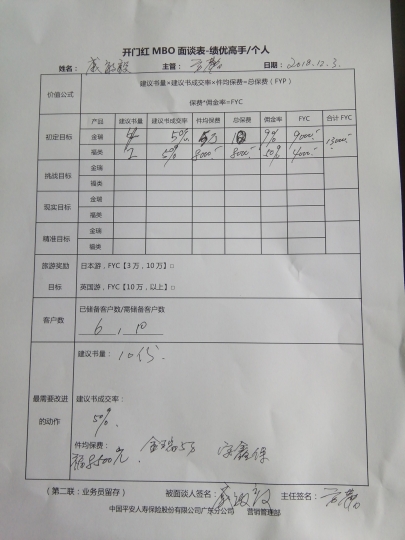 开门红 MBO 面谈表-绩优高手/个人
姓名： 主管： 日期：2018.12.3.
价值公式 建议书量×建议书成交率×件均保费=总保费（FYP）
保费*佣金率=FYC
产品 建议书量 建议书成交率 件均保费 总保费 佣金率 FYC 合计 FYC
初定目标 金瑞 4 5% 5万 10 9% 9000 13000
福类 2 50% 8000 8000 50% 4000
挑战目标 金瑞
福类
现实目标 金瑞
福类
精准目标 金瑞
福类
旅游奖励 日本游，FYC【3 万，10 万】□
目标 英国游，FYC【10 万，以上】□
客户数 已储备客户数/需储备客户数
6 , 10
建议书量：10份.
最需要改进 建议书成交率：
的动作 5%
件均保费： 金瑞5万
福8500元.
（第二联：业务员留存） 被面谈人签名： 主任签名：
中国平安人寿保险股份有限公司广东分公司 营销管理部